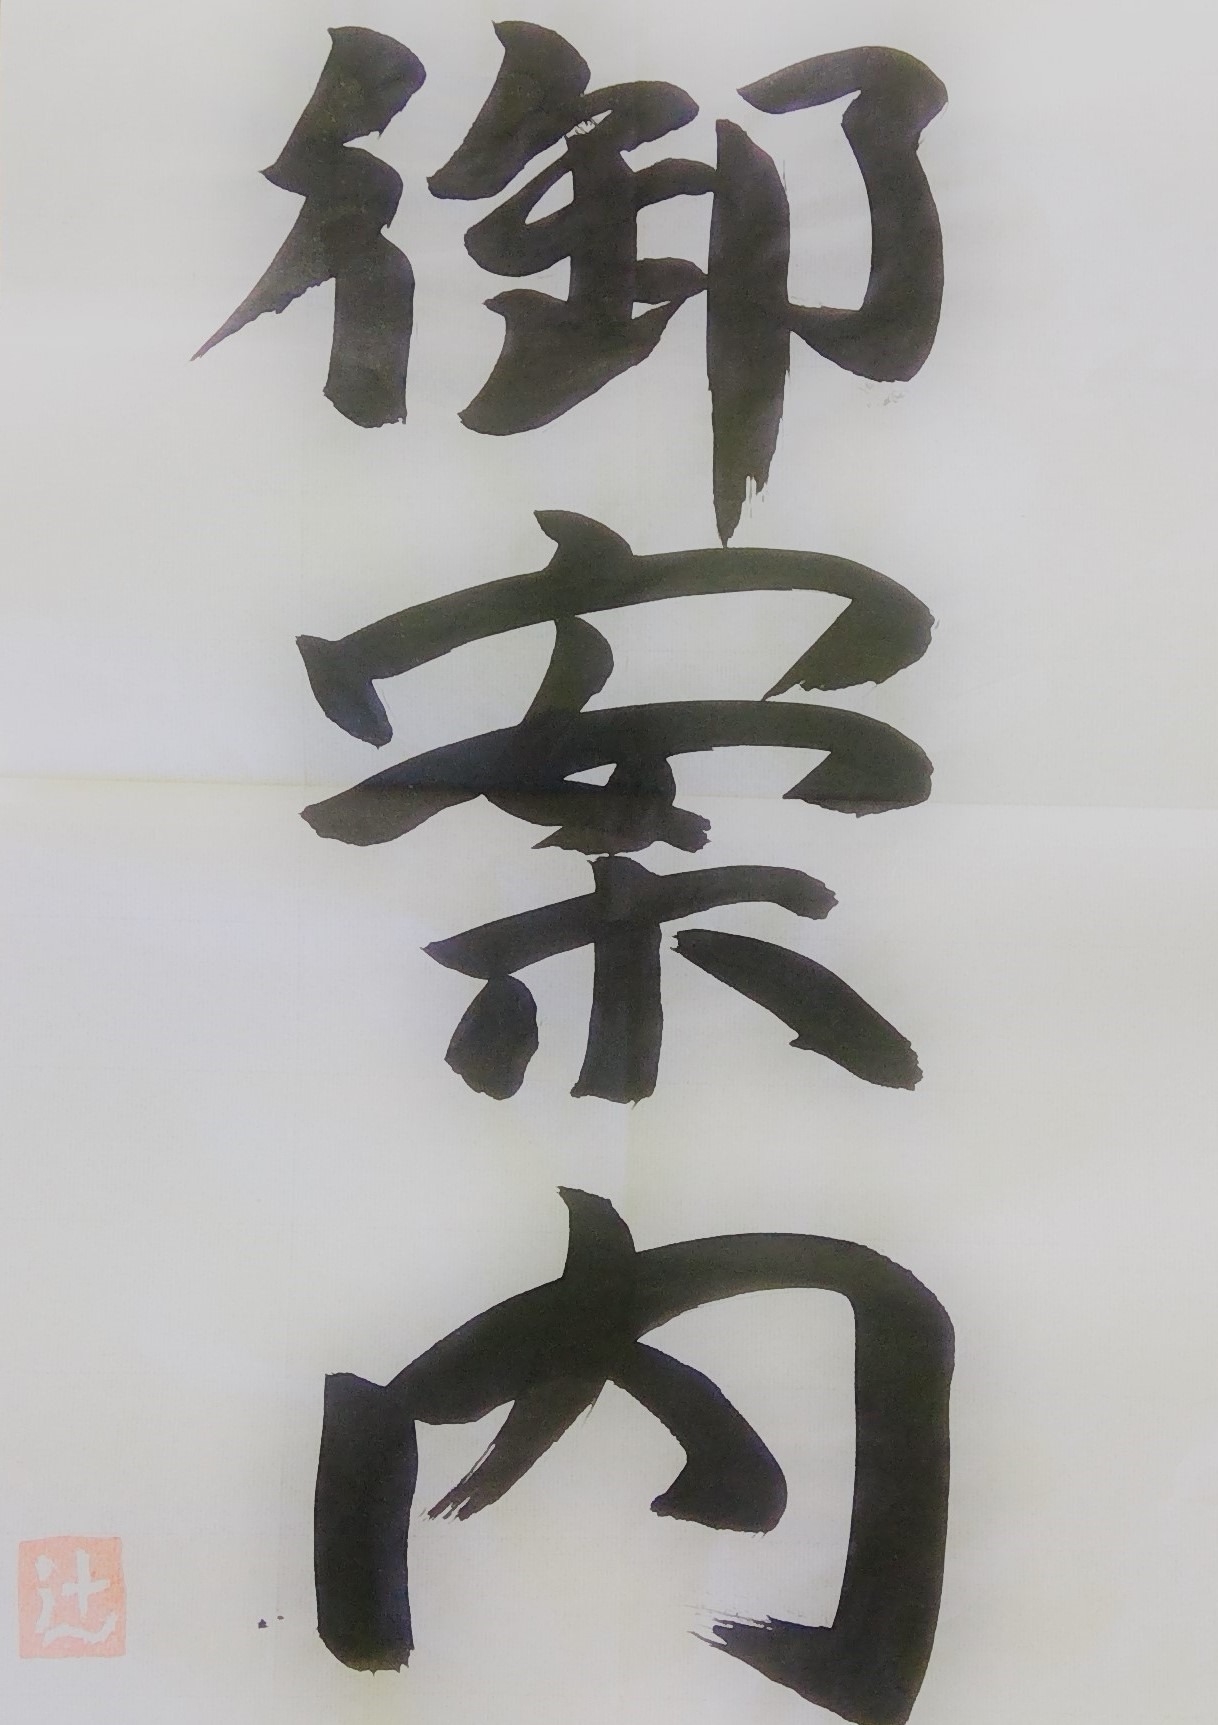 御案内
辻